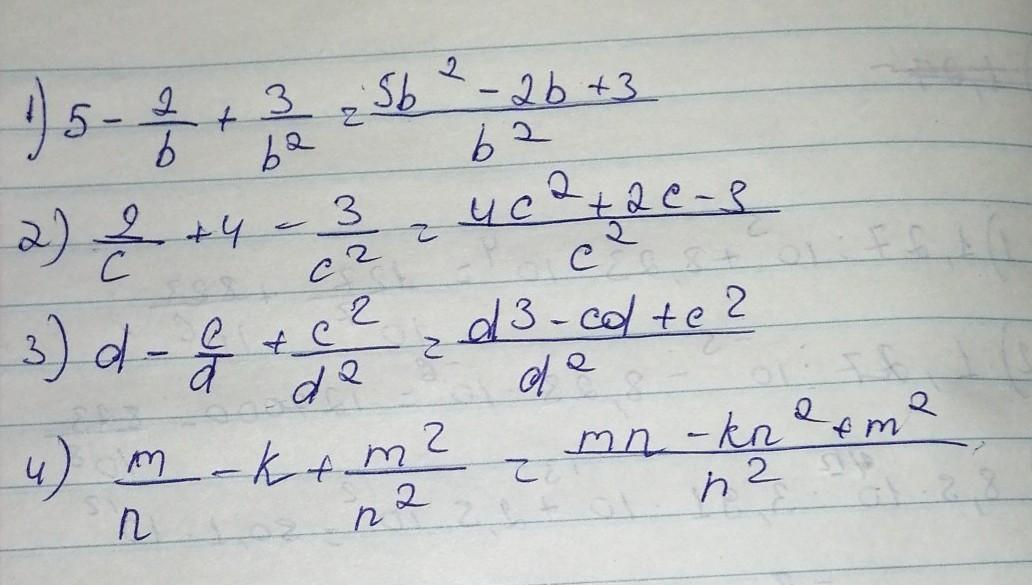 1) 5 - 2/b + 3/b² = (5b² - 2b + 3)/b²
2) 2/c + 4 - 3/c² = (4c² + 2c - 3)/c²
3) d - c/d + c²/d² = (d³ - cd + c²)/d²
4) m/n - k + m²/n² = (mn - kn² + m²)/n²